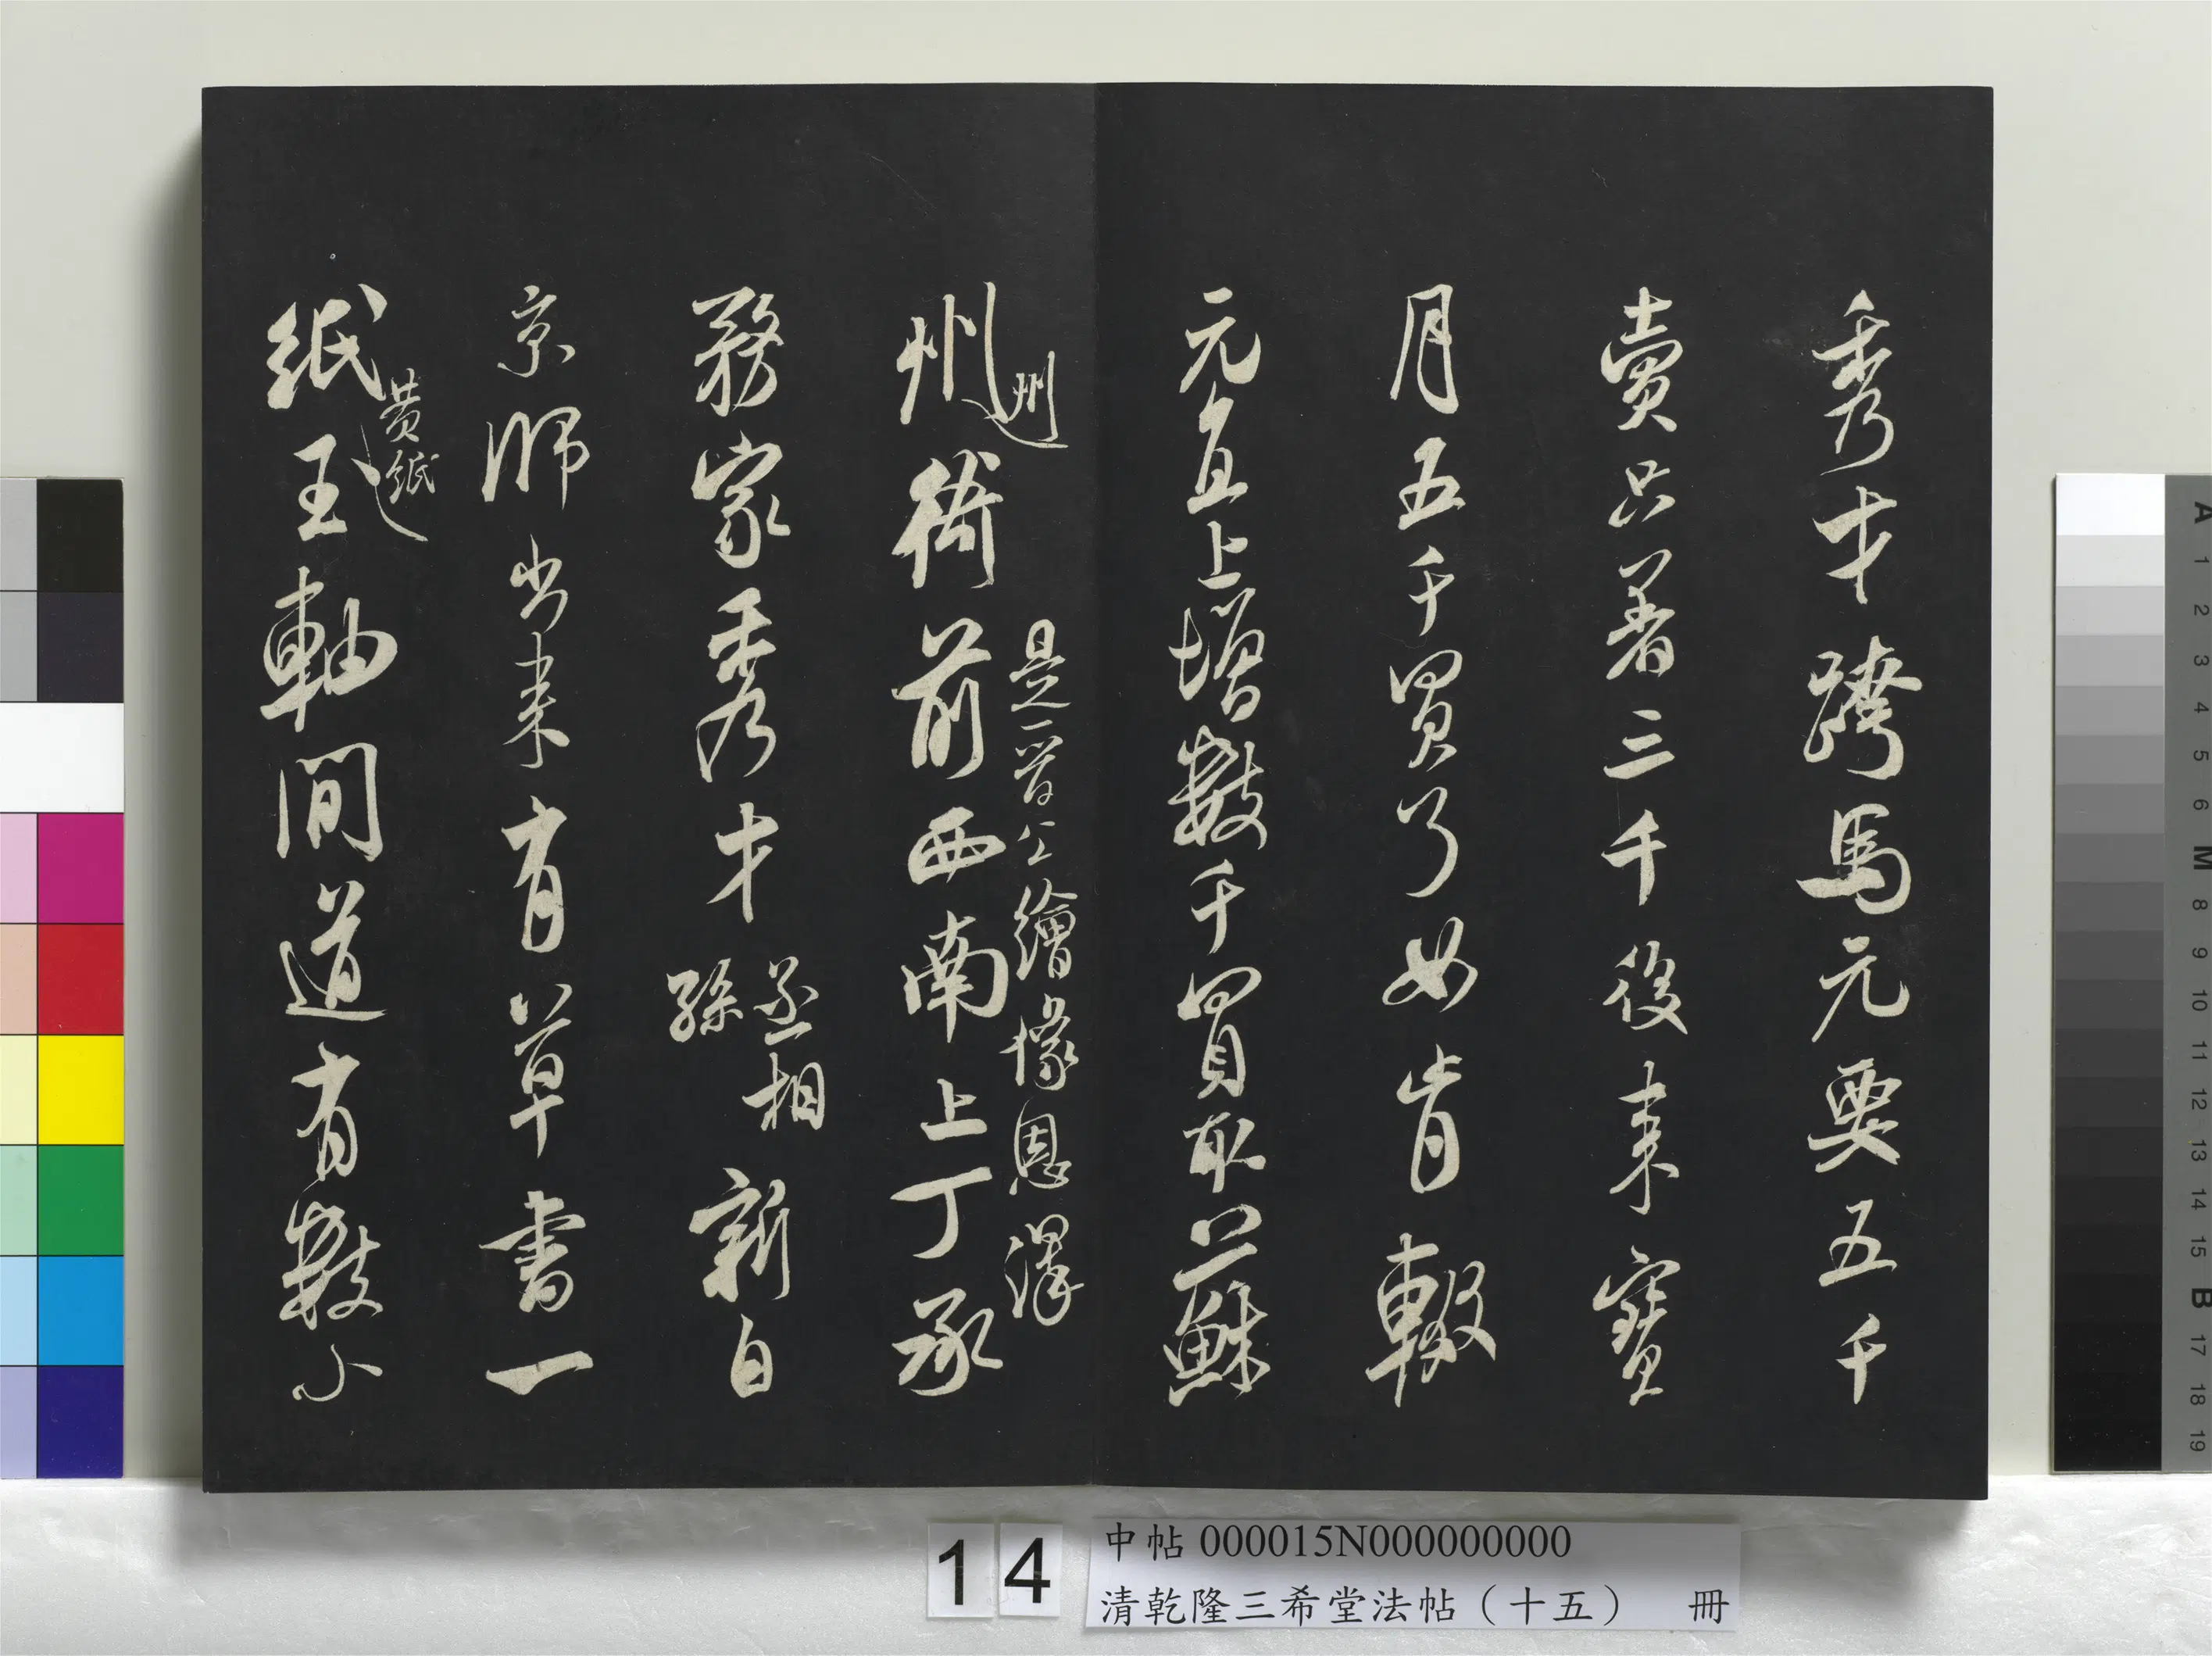 秀才躋馬元要五千
賣只著三千後来寶
月五千買了如肯輟
元直上增數千買取蘇
州
是一晉公繪像恩澤
州衙前西南上丁承
務家秀才
丞相
孫
新自
京師出来有草書一
黄紙
紙玉軸間道有數小
14
中帖 000015N000000000
清乾隆三希堂法帖（十五） 冊
A 1 2 3 4 5 6 M 8 9 10 11 12 13 14 15 B 17 18 19